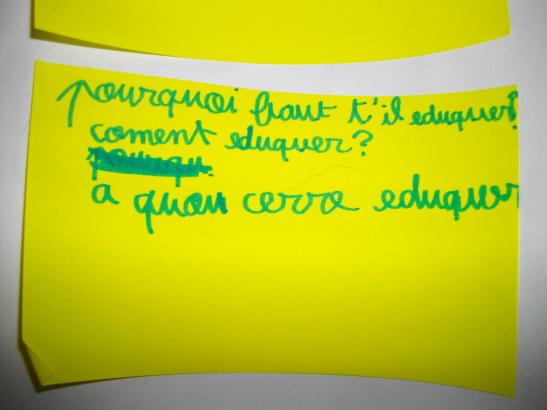 pourquoi faut t'il eduquer?
coment eduquer?
pourqu
a quoi cerre eduquer